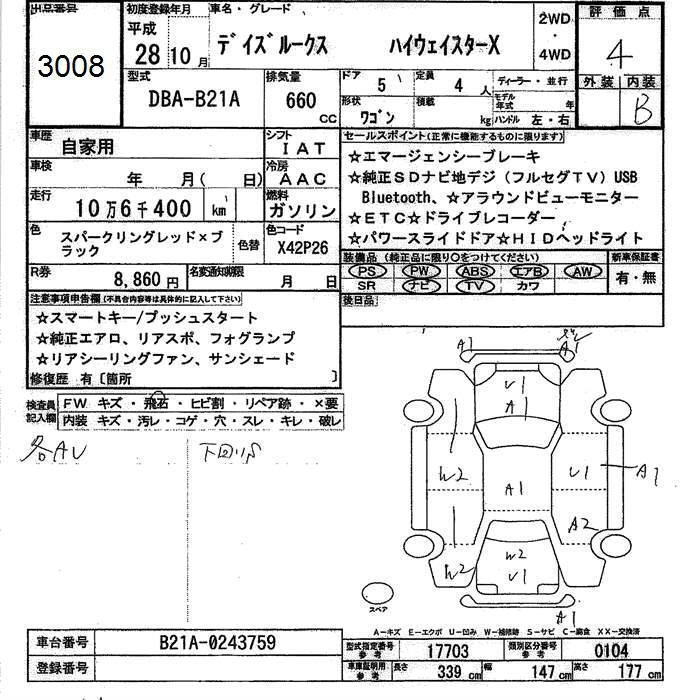 出品番号
3008
初度登録年月
平成
28 10月
車名・グレード
デイズルークス ハイウェイスターX
2WD
・
4WD
評価点
4
外装 内装
B
型式
DBA-B21A
排気量
660
cc
ドア
5
定員
4 人
ディーラー・並行
モデル年式 年
形状
ワゴン
積載
kg
ハンドル 左・右
車歴
自家用
シフト
IAT
車検
年 月( 日)
冷房
AAC
走行
10万6千400 km
燃料
ガソリン
色
スパークリングレッド×ブラック
色替
色コード
X42P26
R券
8,860円
名変通知期限
月 日
セールスポイント(正常に機能するものに限ります)
☆エマージェンシーブレーキ
☆純正SDナビ地デジ(フルセグTV)USB
Bluetooth、☆アラウンドビューモニター
☆ETC☆ドライブレコーダー
☆パワースライドドア☆HIDヘッドライト
装備品(純正品に限り○をつけてください)
PS PW ABS エアB AW
SR ナビ TV カワ
新車保証書
有・無
後日品
注意事項申告欄(不具合内容等は具体的に記入して下さい)
☆スマートキー/プッシュスタート
☆純正エアロ、リアスポ、フォグランプ
☆リアシーリングファン、サンシェード
修復歴 有〔箇所 〕
検査員記入欄
FW キズ・飛石・ヒビ割・リペア跡・×要
内装 キズ・汚レ・コゲ・穴・スレ・キレ・破レ
各AU
下回りS
A1
A1
U1
A1
W2
U1
A1
A1
A2
W2
W2
U1
A1
スペア
A－キズ E－エクボ U－凹み W－補修跡 S－サビ C－腐食 XX－交換済
車台番号
B21A-0243759
登録番号
型式指定番号
参考
17703
類別区分番号
参考
0104
車庫証明用
参考
長さ
339 cm
幅
147 cm
高さ
177 cm